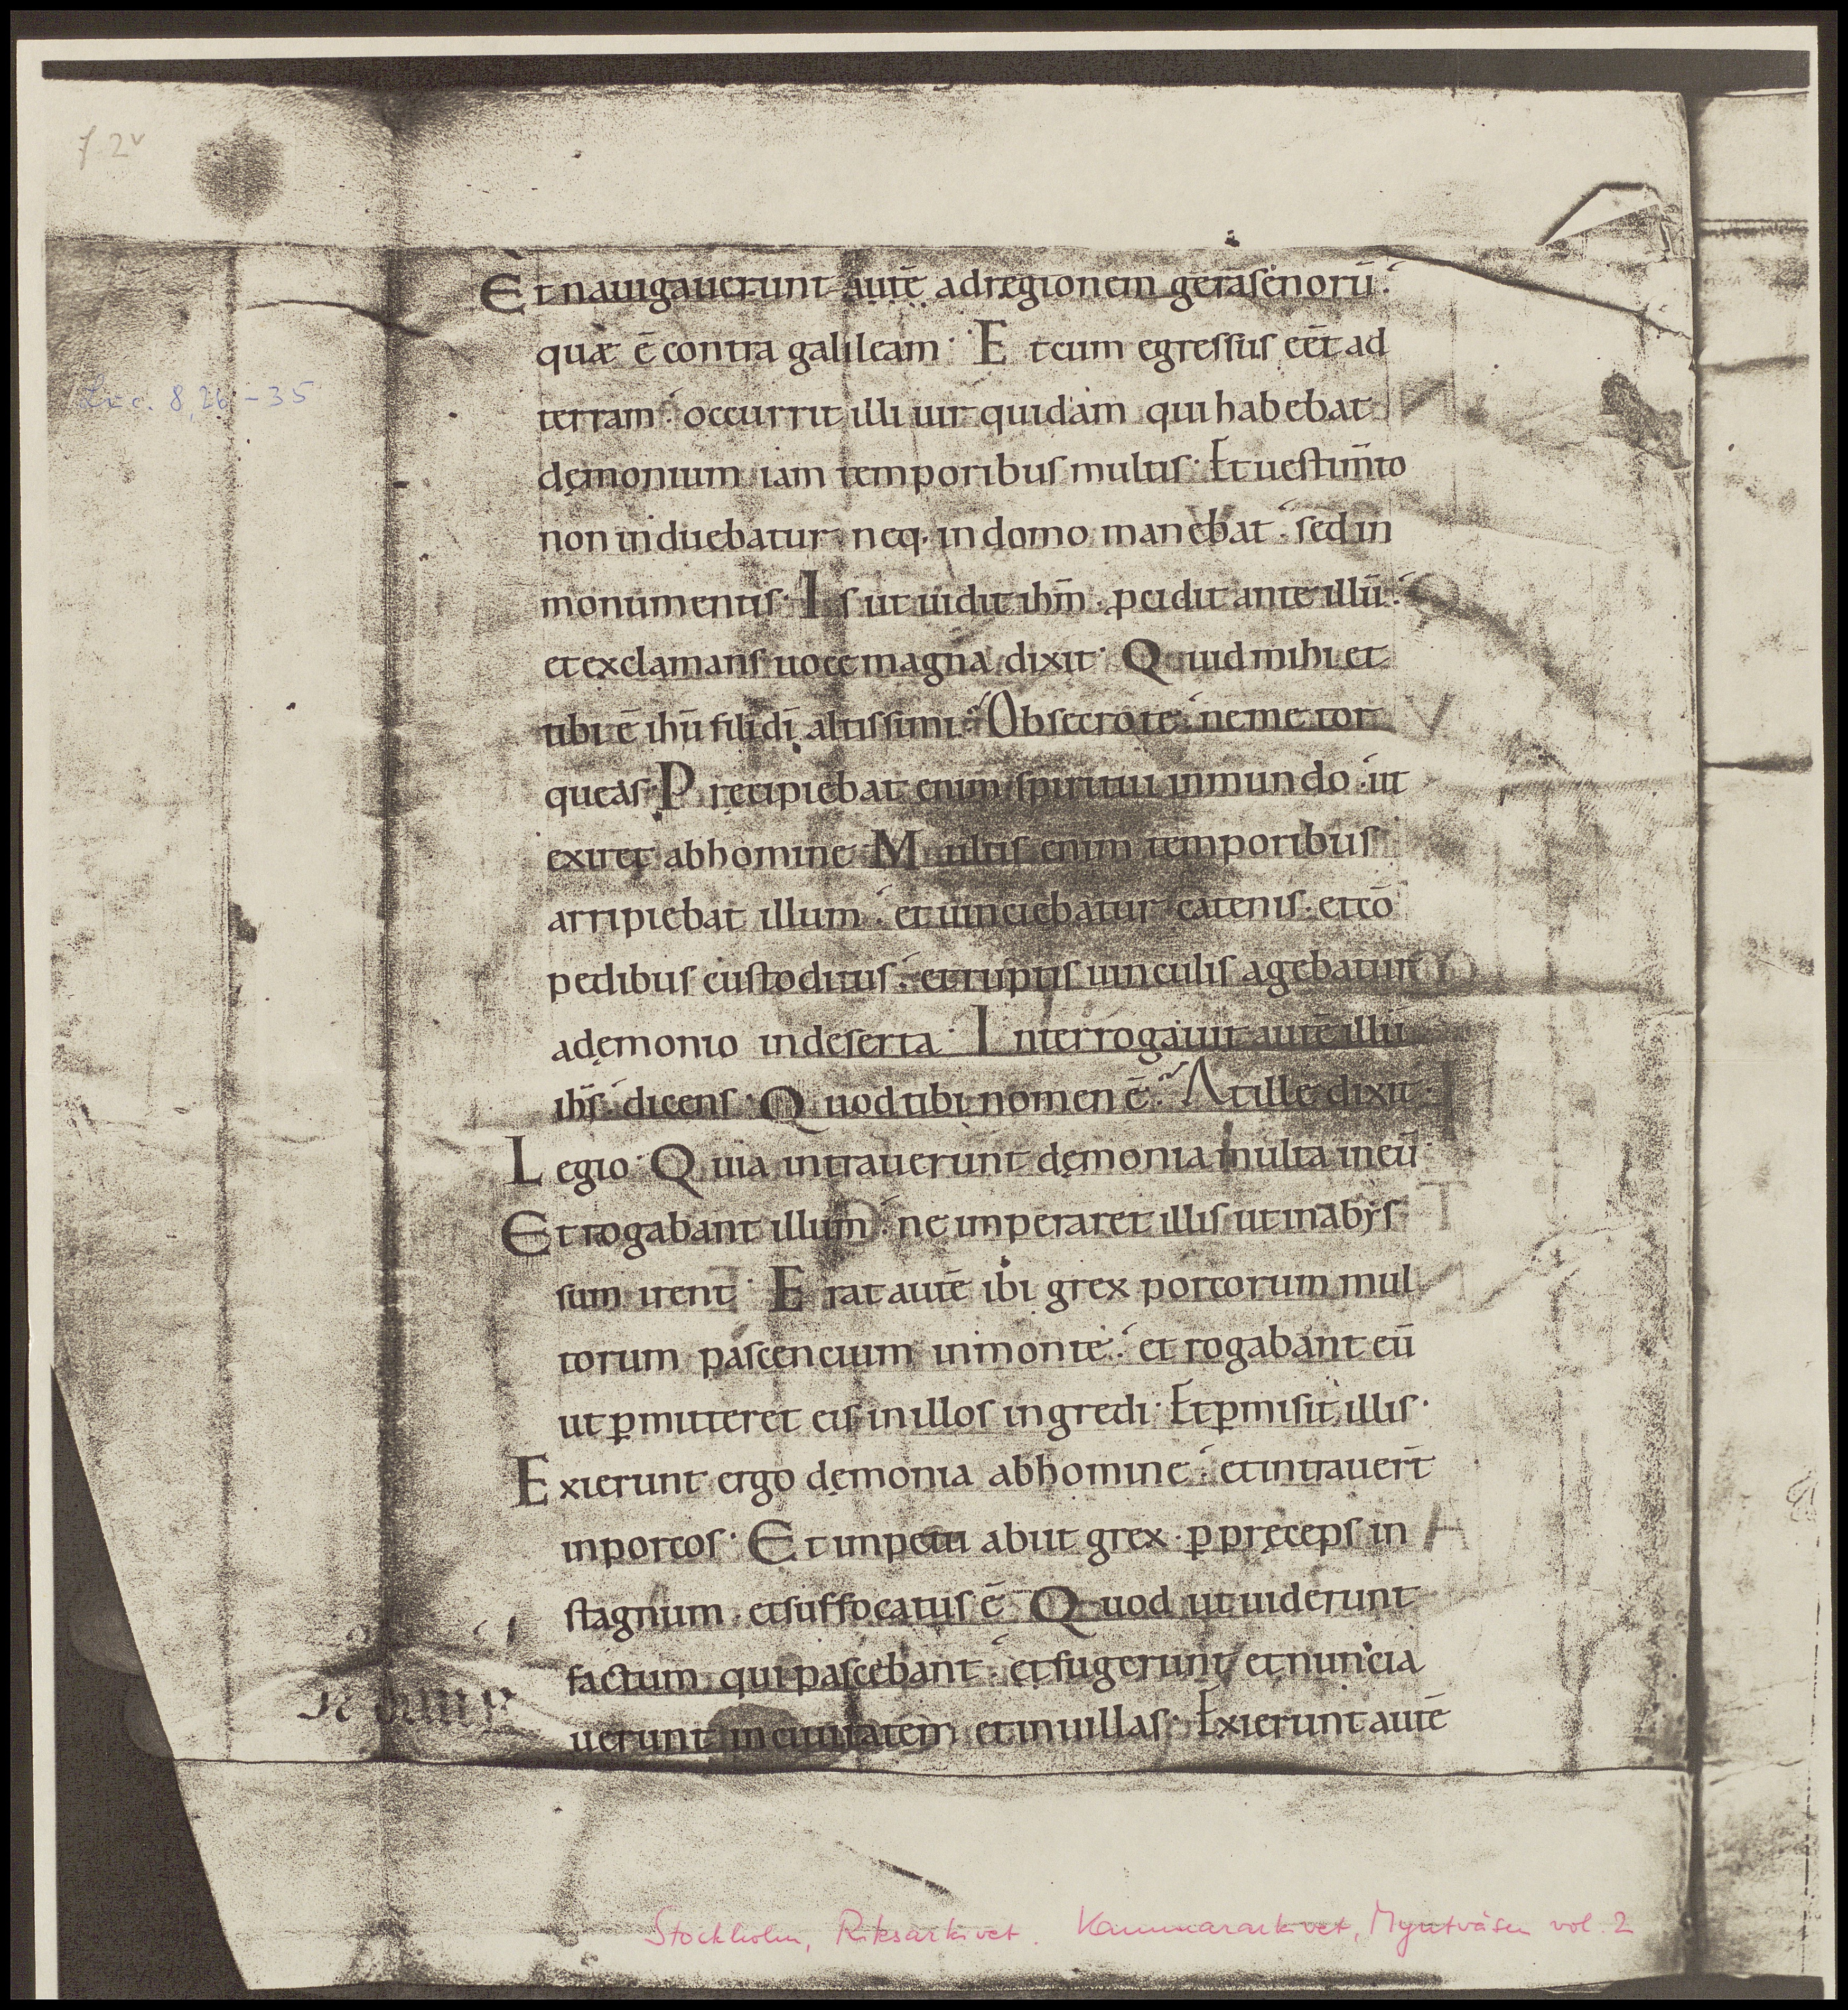 f. 2v
Luc. 8, 26 - 35
Et nauigauerunt autē ad regionem gerasenorū.
quæ ē contra galileam. Et cum egressus eēt ad
terram. occurrit illi uir quidam qui habebat
dęmonium iam temporibus multis. Et uestim̄to
non induebatur neq. in domo manebat. sed in
monumentis. Is ut uidit ihm̄. ꝓcidit ante illū.
et exclamans uoce magna dixit. Quid mihi et
tibi ē ihū fili dī altissimi. Obsecro te. ne me tor
queas. Pręcipiebat enim spiritui inmundo. ut
exiret ab homine. Multis enim temporibus
arripiebat illum. et uinciebatur catenis. et cō
pedibus custoditus. et ruptis uinculis agebatur
a dęmonio in deserta. Interrogauit autē illū
ihs̄. dicens. Quod tibi nomen ē. At ille dixit.
Legio. Quia intrauerunt dęmonia multa in eū.
Et rogabant illum. ne imperaret illis ut in abys
sum irent. Erat autē ibi grex porcorum mul
torum pascencium in monte. et rogabant eū
ut ꝑmitteret eis in illos ingredi. Et ꝑmisit illis.
Exierunt ergo dęmonia ab homine. et intrauer̄t
in porcos. Et impetu abiit grex. ꝑ pręceps in
stagnum. et suffocatus ē. Quod ut uiderunt
factum qui pascebant. et fugerunt et nuncia
uerunt in ciuitatem et in uillas. Exierunt autē
Stockholm, Riksarkivet. Kammararkivet, Myntväsen vol. 2